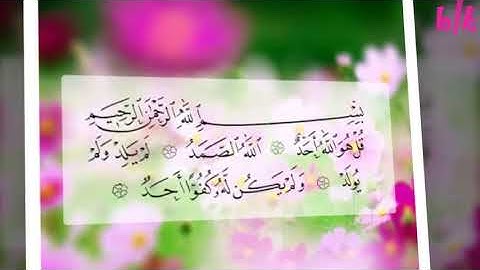 b/t
بِسْمِ اللَّهِ الرَّحْمَٰنِ الرَّحِيمِ
قُلْ هُوَ اللَّهُ أَحَدٌ ۞ اللَّهُ الصَّمَدُ ۞ لَمْ يَلِدْ وَلَمْ
يُولَدْ ۞ وَلَمْ يَكُن لَّهُ كُفُوًا أَحَدٌ ۞